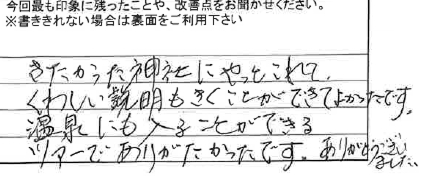 今回最も印象に残ったことや、改善点をお聞かせください。
※書ききれない場合は裏面をご利用下さい
きたかった神社にやっとこれて、
くわしい説明もきくことができてよかったです。
温泉にも入ることができる
ツアーでありがたかったです。ありがとうござい
ました。